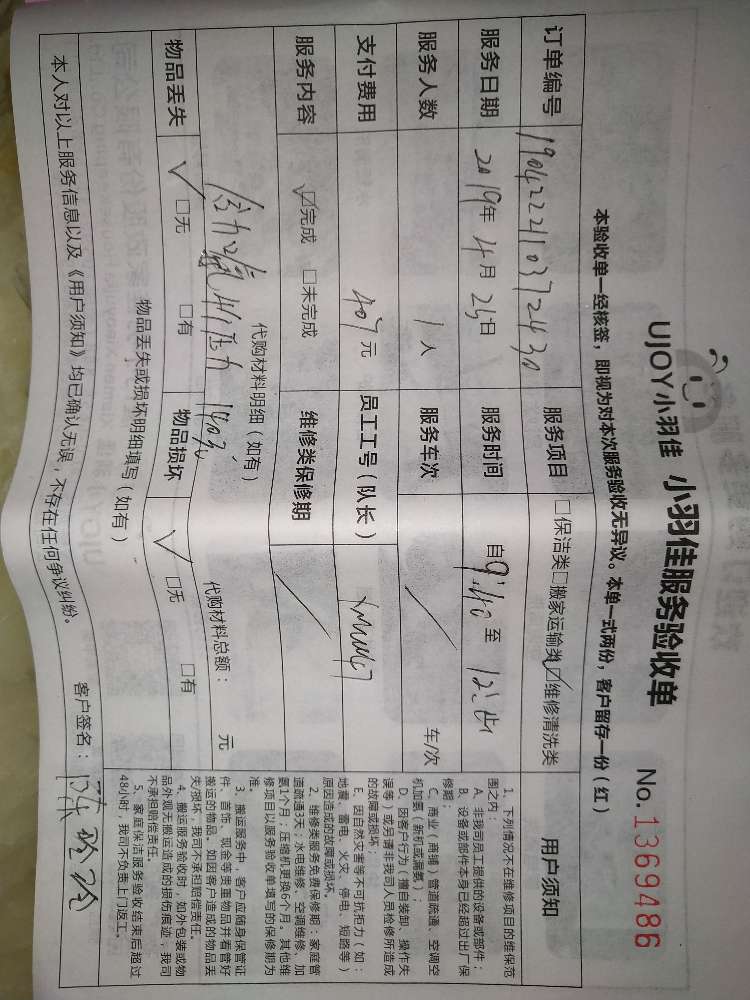 UJOY小羽佳 小羽佳服务验收单 No.1369486
本验收单一经核签，即视为对本次服务验收无异议。本单一式两份，客户留存一份（红）
订单编号 19042221037243 服务项目 □保洁类□搬家运输类☑维修清洗类
服务日期 2019年4月25日 服务时间 自9:40至12:
服务人数 1人 服务车次 车/次
支付费用 407元 员工工号（队长）
服务内容 ☑完成 □未完成 维修类保修期
代购材料明细（如有）
140元
代购材料总额： 元
物品丢失 √□无 □有 物品损坏 √□无 □有
物品丢失或损坏明细填写（如有）
本人对以上服务信息以及《用户须知》均已确认无误，不存在任何争议纠纷。
客户签名：陈
用户须知
1、下列情况不在维修项目的维保范
围之内：
A、非我司员工提供的设备或部件；
B、设备或部件本身已经超过出厂保
修期；
C、商业（商铺）管道疏通、空调空
机加氨（新机或漏氨）；
D、因客户行为（擅自装卸、操作失
误等）或另请非我司人员检修所造成
的故障或损坏；
E、因自然灾害等不可抗拒力（如：
地震、雷电、火灾、停电、短路等）
原因造成的故障或损坏。
2、维修类服务免费保修期：家庭管
道疏通3天；水电维修、空调维修、加
氨1个月；压缩机更换6个月。其他维
修项目以服务验收单填写的保修期为
准。
3、搬运服务中，客户应随身保管证
件、首饰、现金等贵重物品并看管好
搬运的物品，如因客户造成的物品丢
失/损坏，我司不承担赔偿责任。
4、搬运服务验收时，如外包装或物
品外观无搬运造成的损伤痕迹，我司
不承担赔偿责任。
5、家庭保洁服务验收结束后超过
48小时，我司不负责上门返工。